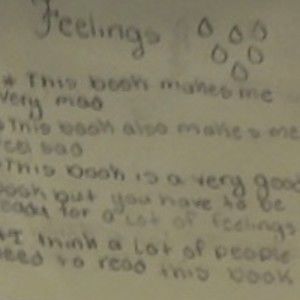 Feelings
* This book makes me
very mad
* This book also makes me
feel sad
* This book is a very good
book but you have to be
ready for a lot of feelings
* I think a lot of people
need to read this book